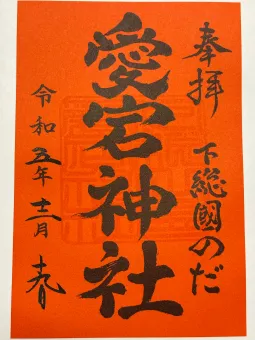 奉拝
下総國のだ
愛宕神社
令和五年十二月九日